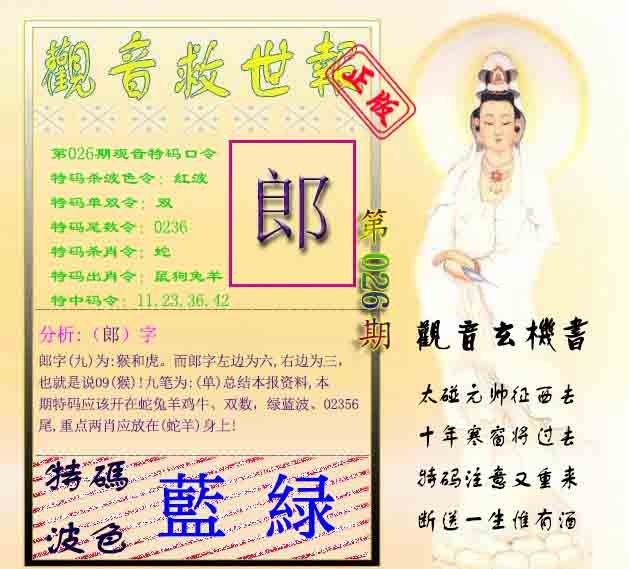 觀音救世報
正版
第026期观音特码口令
特码杀波色令：紅波
特码单双令：双
特码尾数令：0236
特码杀肖令：蛇
特码出肖令：鼠狗兔羊
特中码令：11.23.36.42
郎
第026期
分析:（郎）字
郎字(九)为:猴和虎。而郎字左边为六,右边为三，
也就是说09(猴)!九笔为:(单)总结本报资料,本
期特码应该开在蛇兔羊鸡牛、双数，绿蓝波、02356
尾,重点两肖应放在(蛇羊)身上!
特碼
波色
藍 緑
觀音玄機書
太碰元帅征西去
十年寒窗将过去
特码注意又重来
断送一生惟有酒